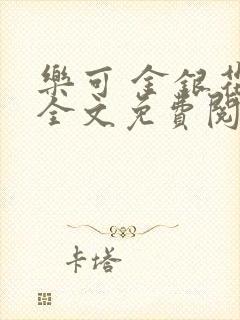 樂可 金銀花
全文免費閱
卡塔